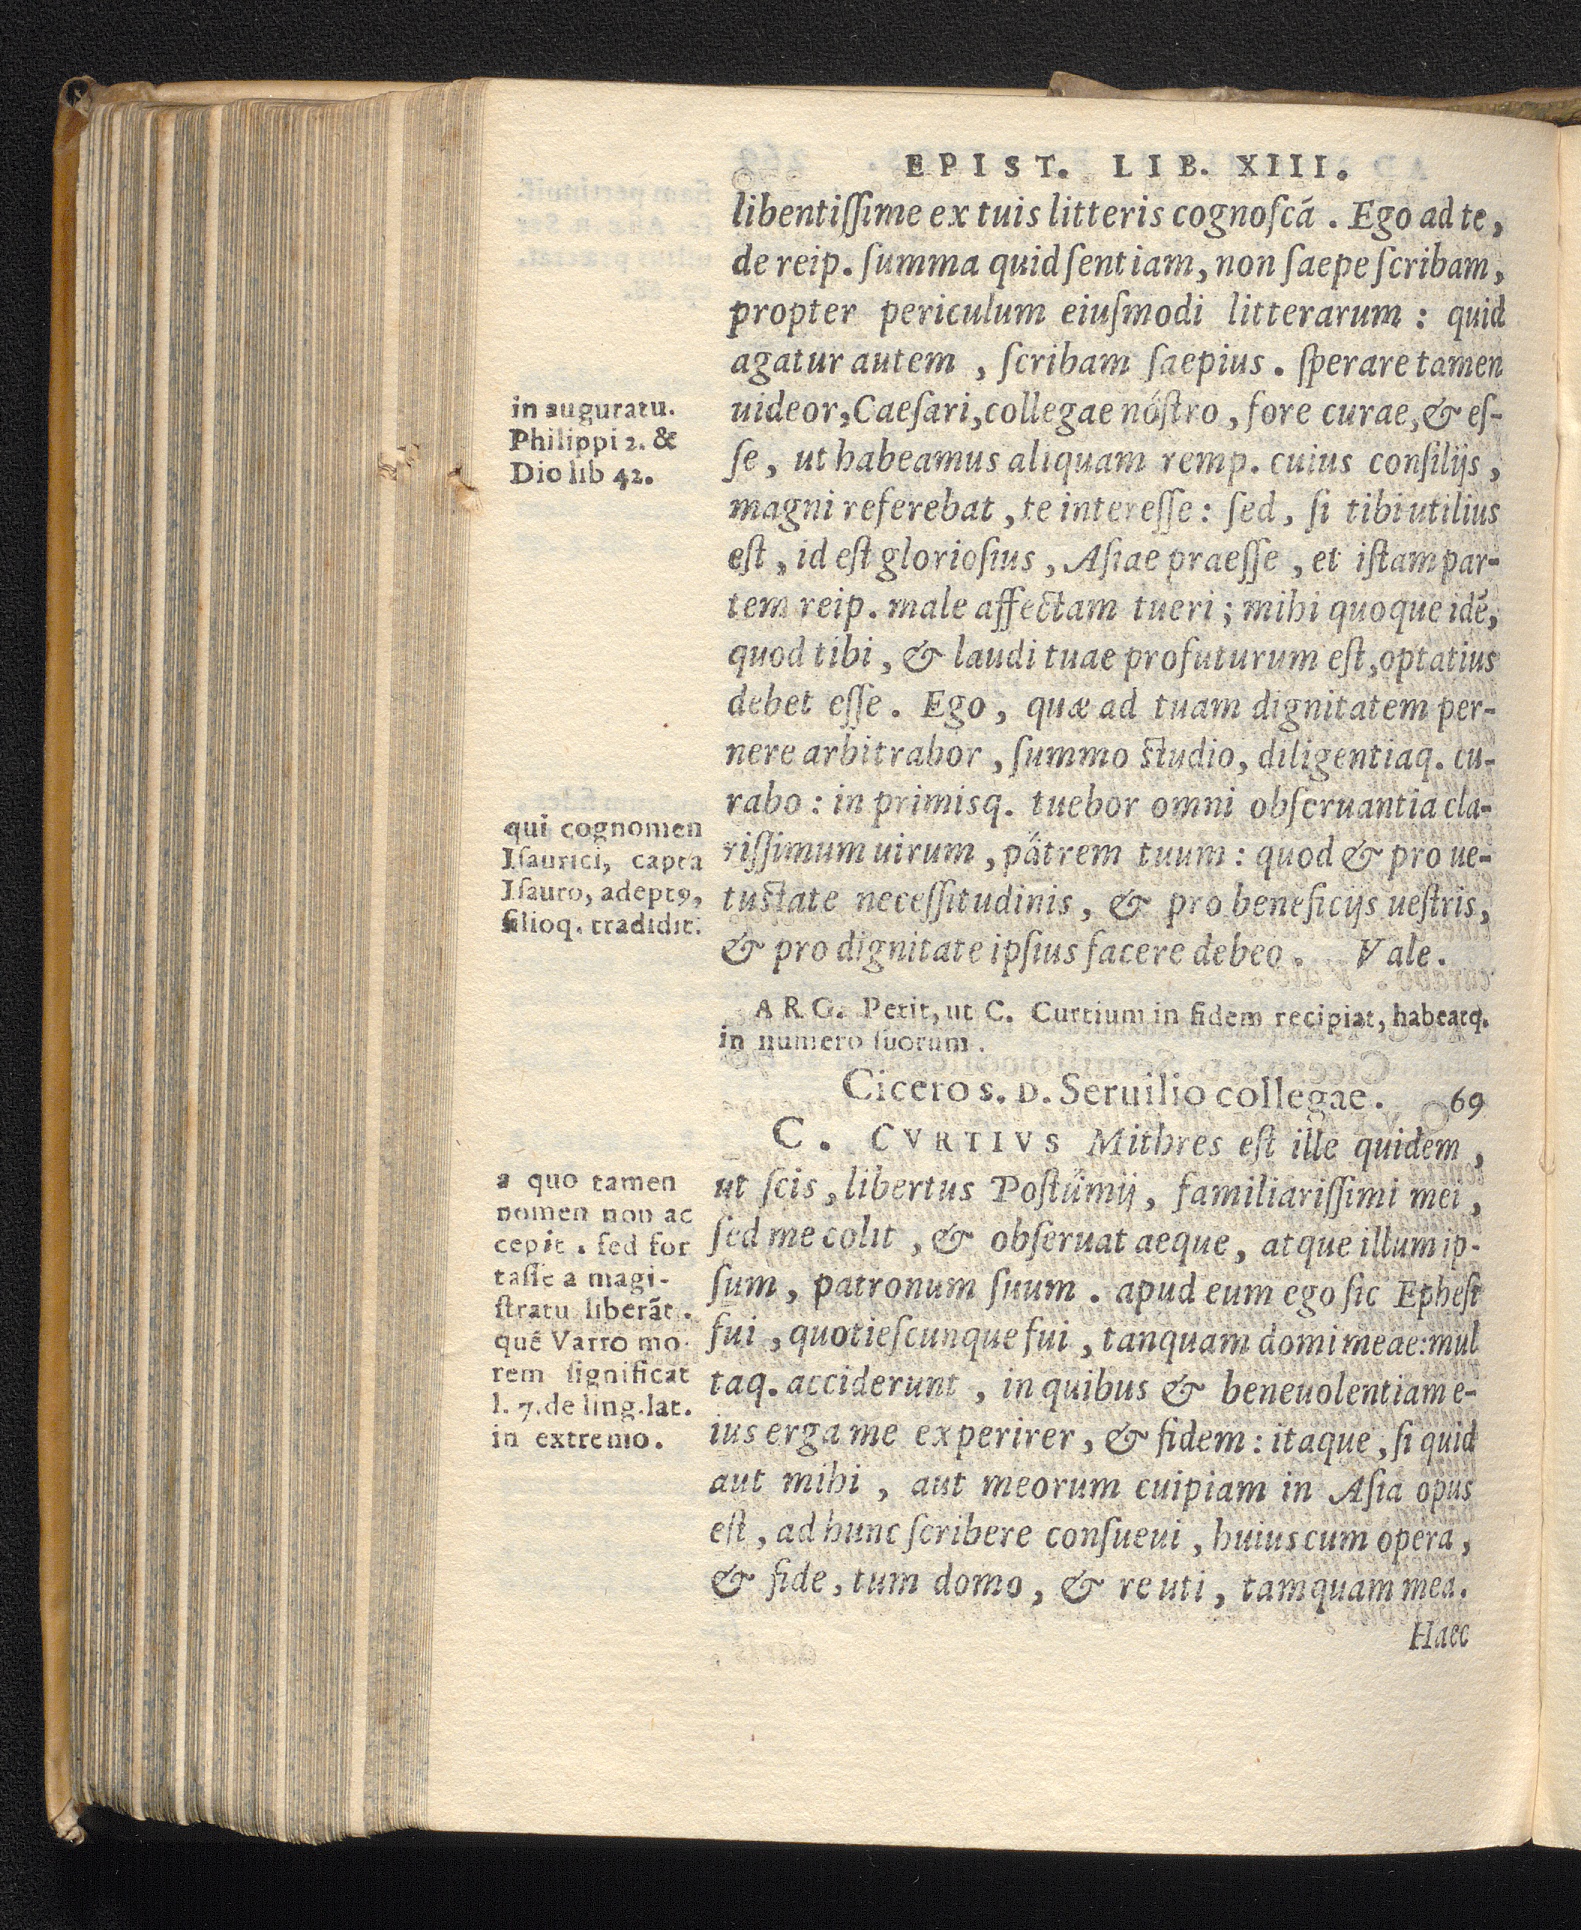 EPIST. LIB. XIII.
libentiſſime ex tuis litteris cognoſcā. Ego ad te,
de reip. ſumma quid ſentiam, non ſaepe ſcribam,
propter periculum eiuſmodi litterarum: quid
agatur autem, ſcribam ſaepius. ſperare tamen
uideor, Caeſari, collegae nóſtro, fore curae, & eſ-
ſe, ut habeamus aliquam remp. cuius conſilijs,
magni referebat, te intereſſe: ſed, ſi tibi utilius
eſt, id eſt glorioſius, Aſiae praeeſſe, et iſtam par-
tem reip. male affectam tueri; mihi quoque idē,
quod tibi, & laudi tuae profuturum eſt, optatius
debet eſſe. Ego, quæ ad tuam dignitatem per-
nere arbitrabor, ſummo ſtudio, diligentiaq. cu-
rabo: in primisq. tuebor omni obſeruantia cla-
riſſimum uirum, pätrem tuum: quod & pro ue-
tustate neceſſitudinis, & pro beneficijs ueſtris,
& pro dignitate ipſius facere debeo. Vale.
in auguratu.
Philippi 2. &
Dio lib 42.
qui cognomen
Iſaurici, capta
Iſauro, adeptꝰ,
filioq. tradidit.
ARG. Petit, ut C. Curtium in fidem recipiat, habeatq.
in numero ſuorum.
Cicero S. D. Seruilio collegae. 69
C. CVRTIVS Mithres eſt ille quidem,
ut ſcis, libertus Poſtümij, familiariſſimi mei,
ſed me colit, & obſeruat aeque, atque illum ip-
ſum, patronum ſuum. apud eum ego ſic Epheſi
fui, quotieſcunque fui, tanquam domi meae: mul
taq. acciderunt, in quibus & beneuolentiam e-
ius erga me experirer, & fidem: itaque, ſi quid
aut mihi, aut meorum cuipiam in Aſia opus
eſt, ad hunc ſcribere conſueui, huius cum opera,
& fide, tum domo, & re uti, tamquam mea.
Haec
a quo tamen
nomen non ac
cepit. ſed for
taſſe a magi-
ſtratu liberāt.
quē Varro mo-
rem ſignificat
l. 7. de ling. lat.
in extremo.